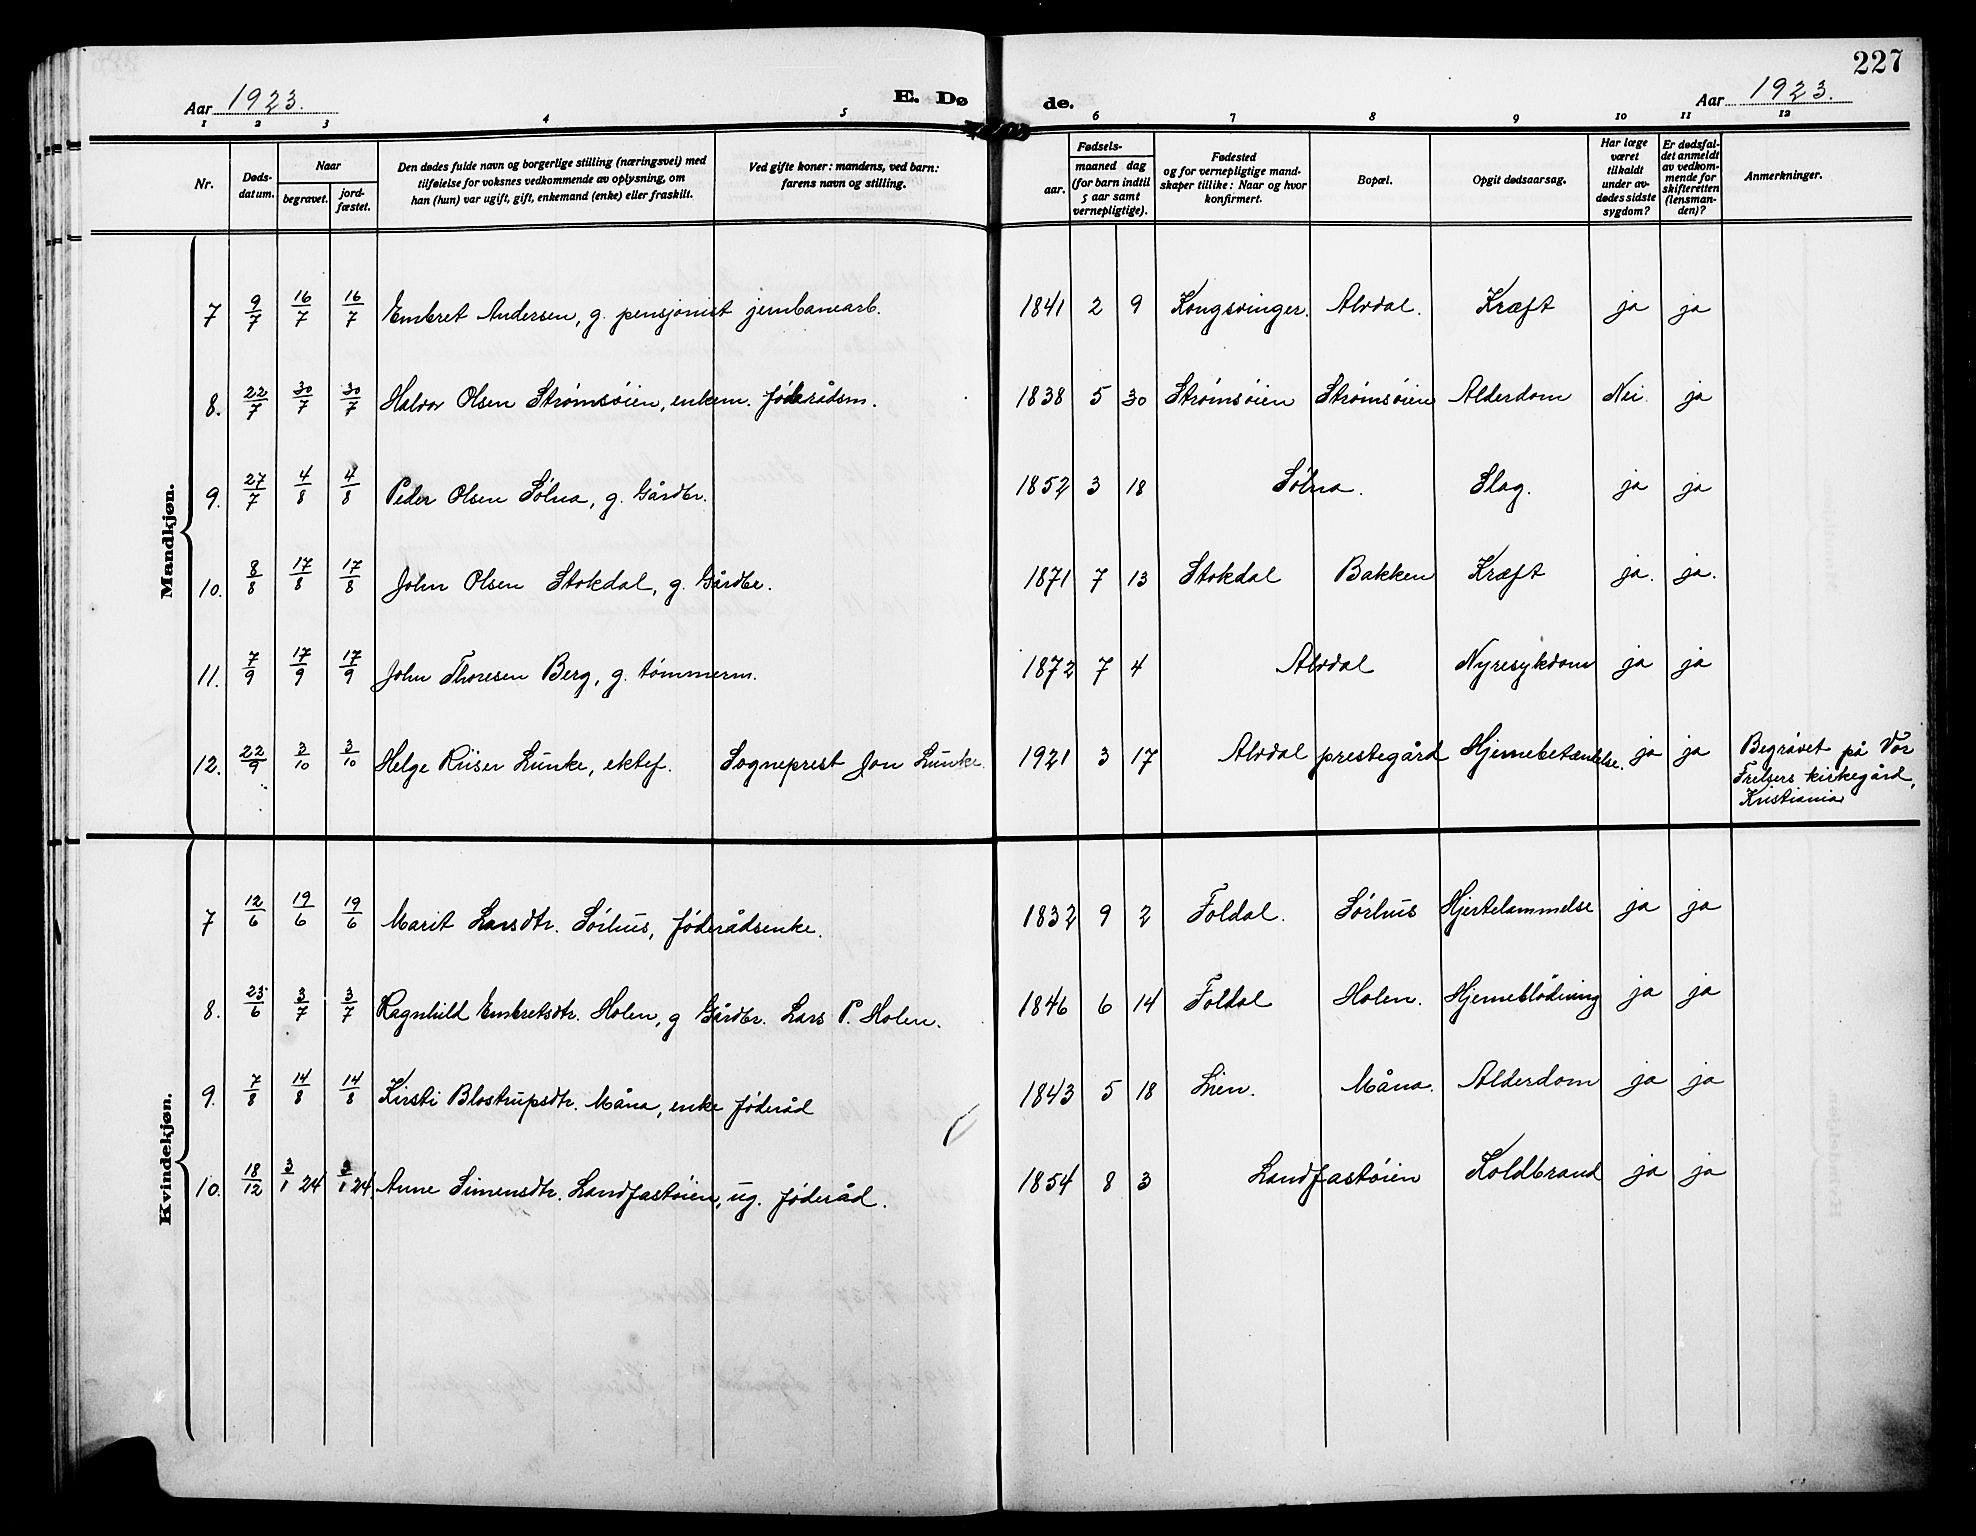 227
Aar 1923. E. Dø de. Aar 1923.
1 2 3 4 5 6 7 8 9 10 11 12
Nr.
Døds-
datum.
Naar
begravet.
jord-
fæstet.
Den dødes fulde navn og borgerlige stilling (næringsvei) med
tilføielse for voksnes vedkommende av oplysning, om
han (hun) var ugift, gift, enkemand (enke) eller fraskilt.
Ved gifte koner: mandens, ved barn:
farens navn og stilling.
Fødsels-
aar.
maaned dag
(for barn indtil
5 aar samt
vernepligtige).
Fødested
og for vernepligtige mand-
skaper tillike: Naar og hvor
konfirmert.
Bopæl.
Opgit dødsaarsag.
Har læge
været
tilkaldt
under av-
dødes sidste
sygdom?
Er dødsfal-
det anmeldt
av vedkom-
mende for
skifteretten
(lensman-
den)?
Anmerkninger.
Mandkjøn.
7 9/7 16/7 16/7 Embret Andersen, g. pensjonist jernbanearb. 1841 2 9 Kongsvinger. Alvdal. Kræft ja ja
8. 22/7 30/7 30/7 Halvor Olsen Strømsøien, enkem. føderådsm. 1838 5 30 Strømsøien Strømsøien Alderdom Nei. ja
9. 27/7 4/8 4/8 Peder Olsen Sølna, g. Gårdbr. 1852 3 18 Sølna. Slag. ja ja
10. 8/8 17/8 17/8 John Olsen Stokdal, g. Gårdbr. 1871 7 13 Stokdal Bakken Kræft ja. ja.
11. 7/9 17/9 17/9 John Thoresen Berg, g. tømmerm. 1872 7 4 Alvdal Nyresykdom ja ja
12. 22/9 3/10 3/10 Helge Riiser Lunke, ektef. Sogneprest Jon Lunke. 1921 3 17 Alvdal prestegård Hjernebetændelse. ja ja Begravet på Vor
Frelsers kirkegård,
Kristiania
Kvindekjøn.
7 12/6 19/6 19/6 Marit Larsdtr. Sørhus, føderådsenke. 1832 9 2 Foldal. Sørhus Hjertelammelse ja ja
8. 23/6 3/7 3/7 Ragnhild Embretsdtr. Holen, g Gårdbr. Lars P. Holen. 1846 6 14 Foldal Holen. Hjerneblødning ja ja
9. 7/8 14/8 14/8 Kirsti Blostrupsdtr. Måna, enke føderåd 1843 5 18 Lien. Måna. Alderdom ja ja
10. 18/12 3/1 24 3/1 24 Anne Simensdtr. Landfastøien, ug. føderåd. 1854 8 3 Landfastøien Koldbrand ja ja